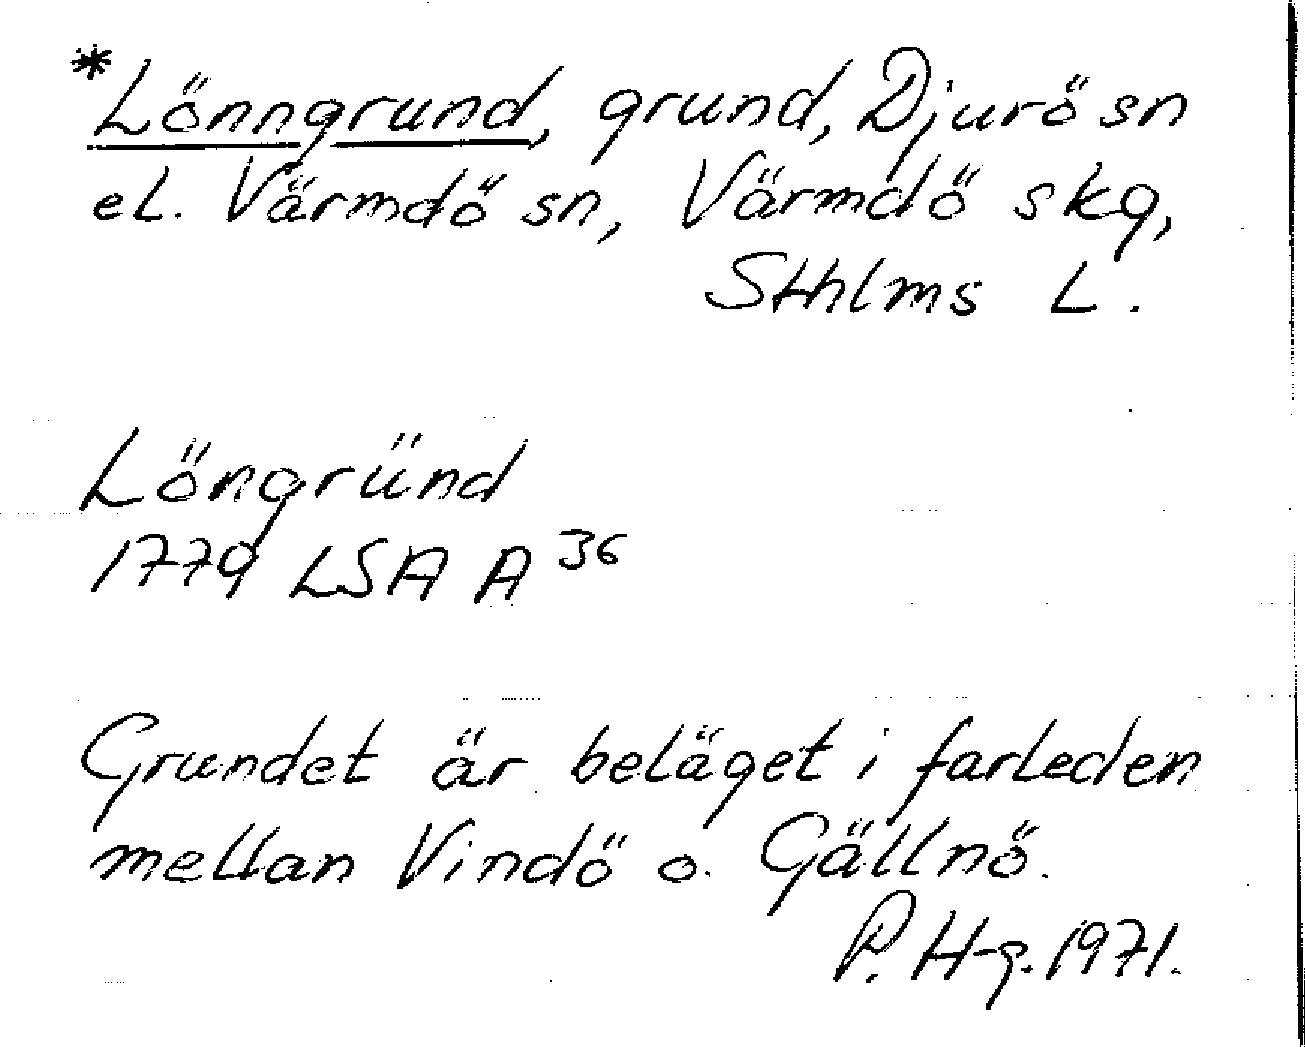 *Lönngrund, grund, Djurö sn
el. Värmdö sn, Värmdö skg,
Sthlms L.
Löngründ
1779 LSA A 36
Grundet är beläget i farleden
mellan Vindö o. Gällnö.
P. H-g. 1971.